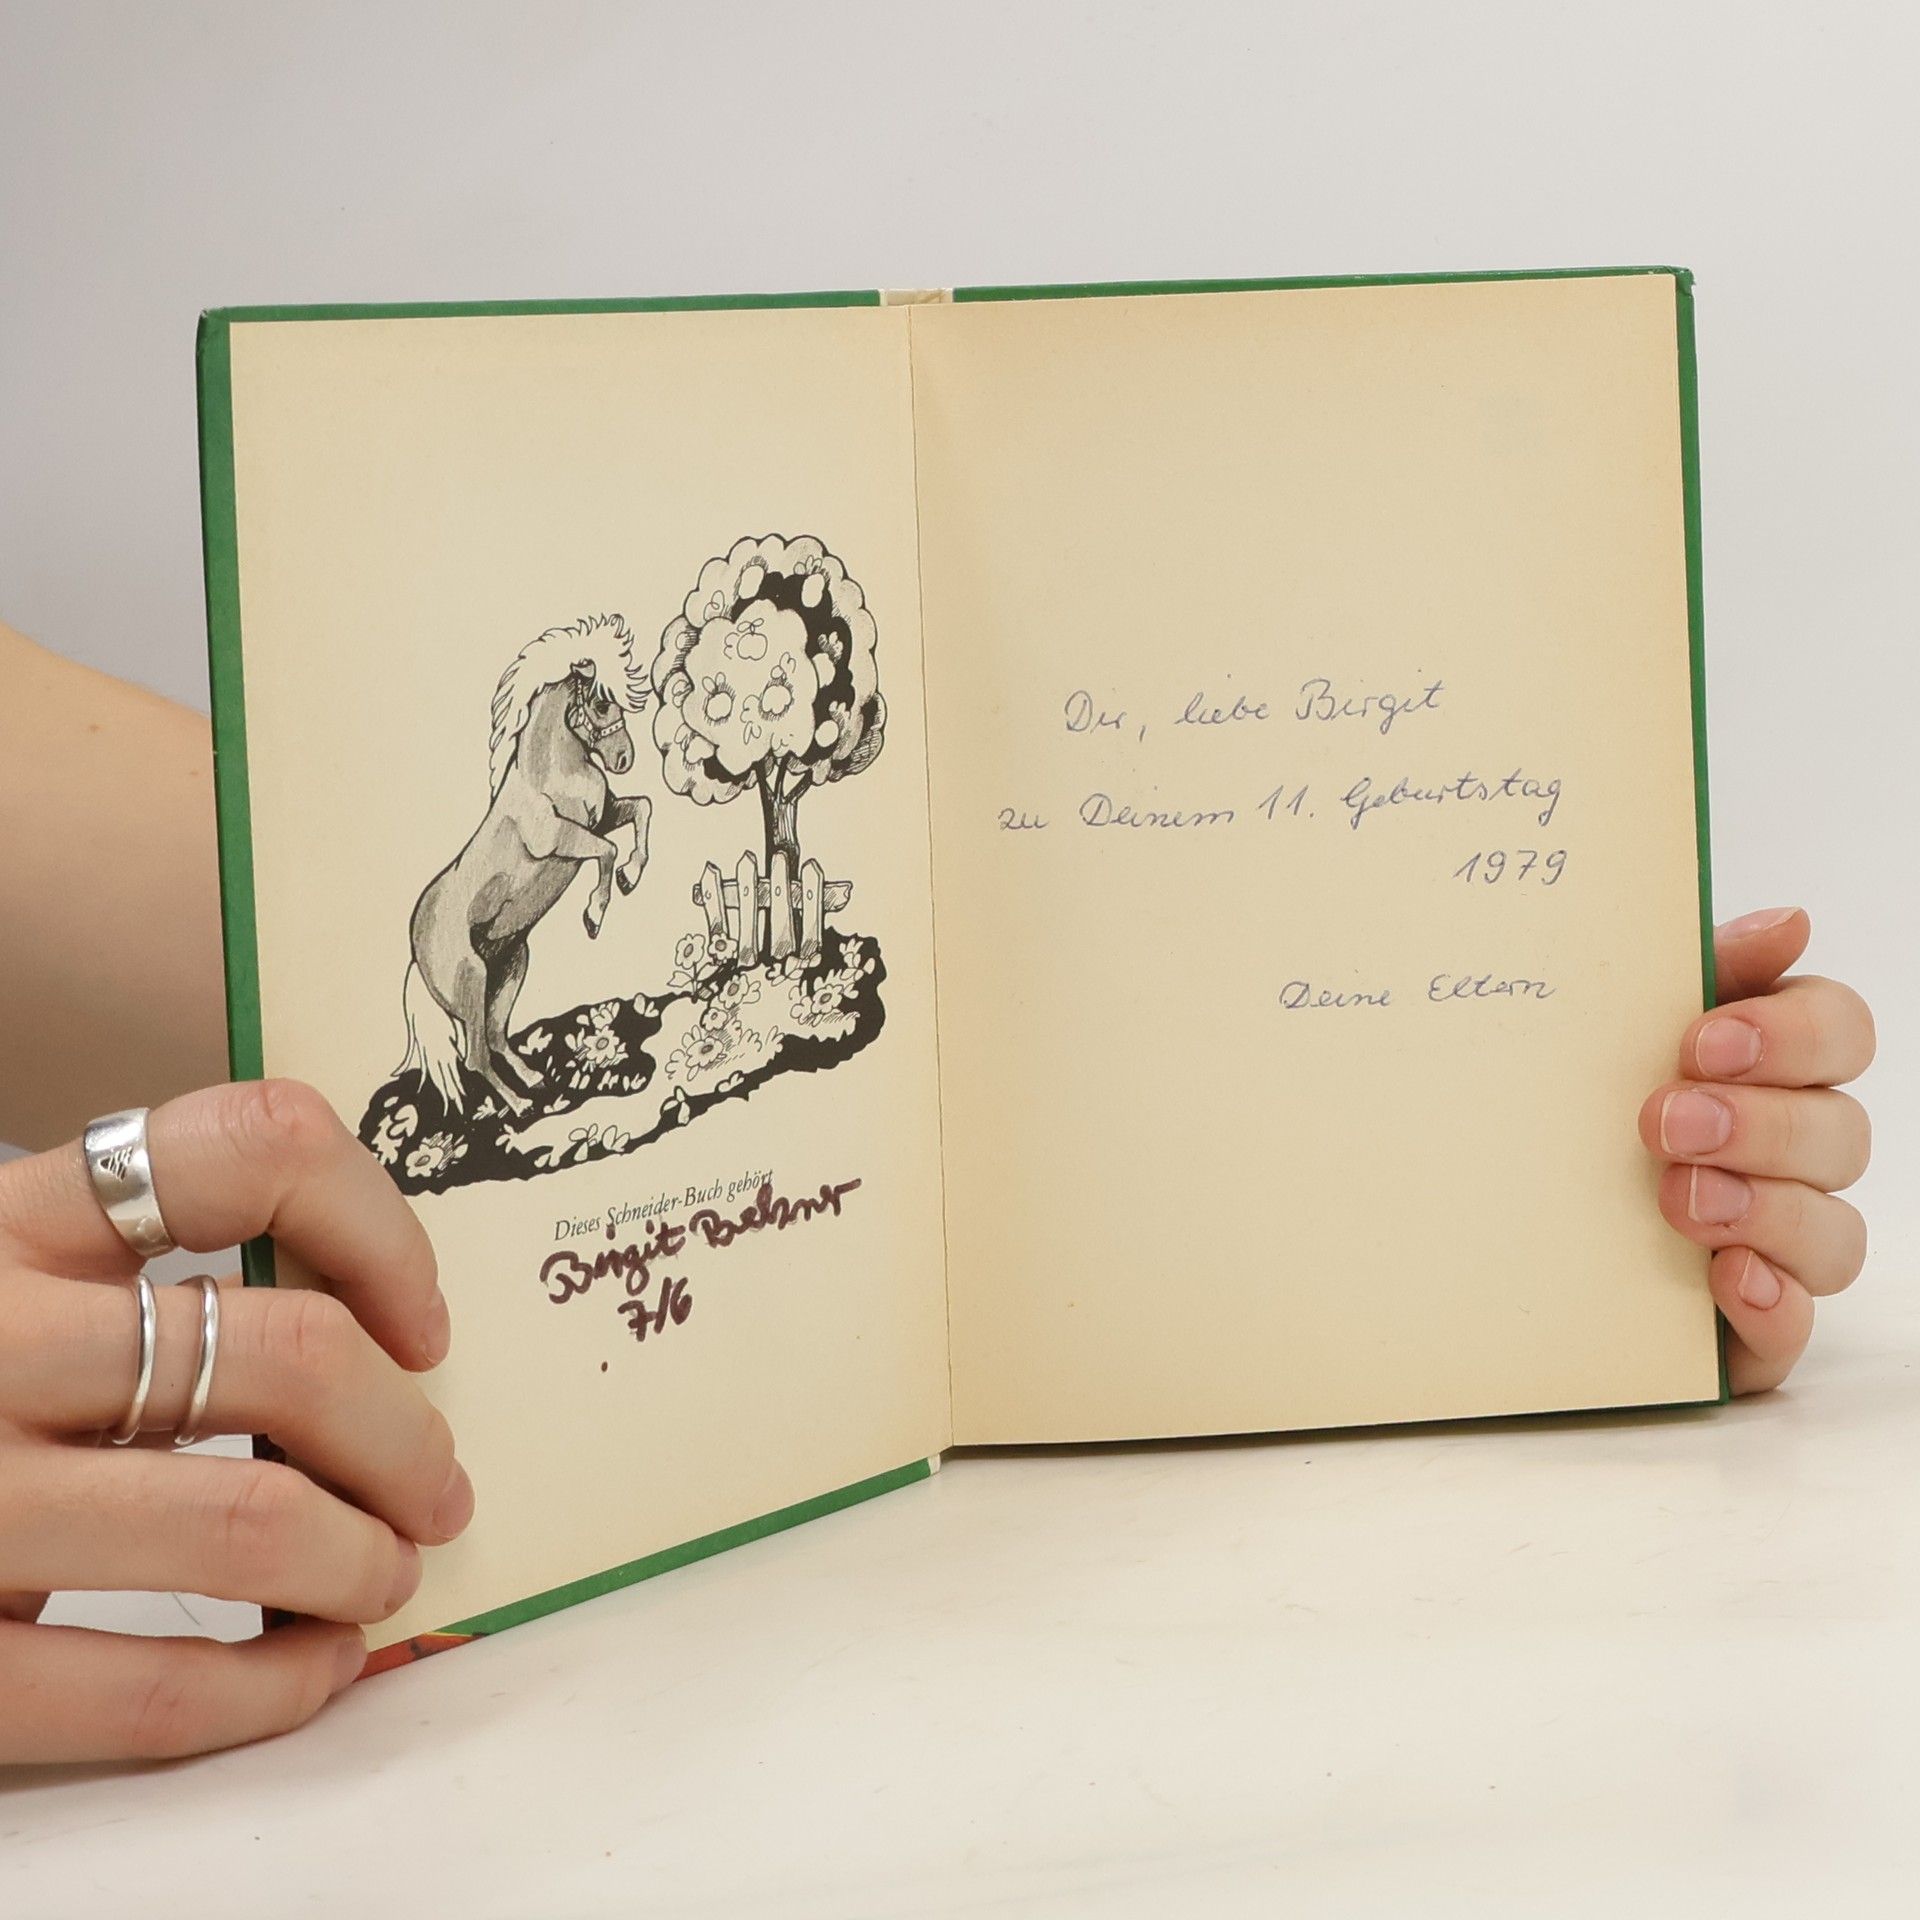 Dieses Schneider-Buch gehört
Birgit Belzner
7/6
Dir, liebe Birgit
zu Deinem 11. Geburtstag
1979
Deine Eltern